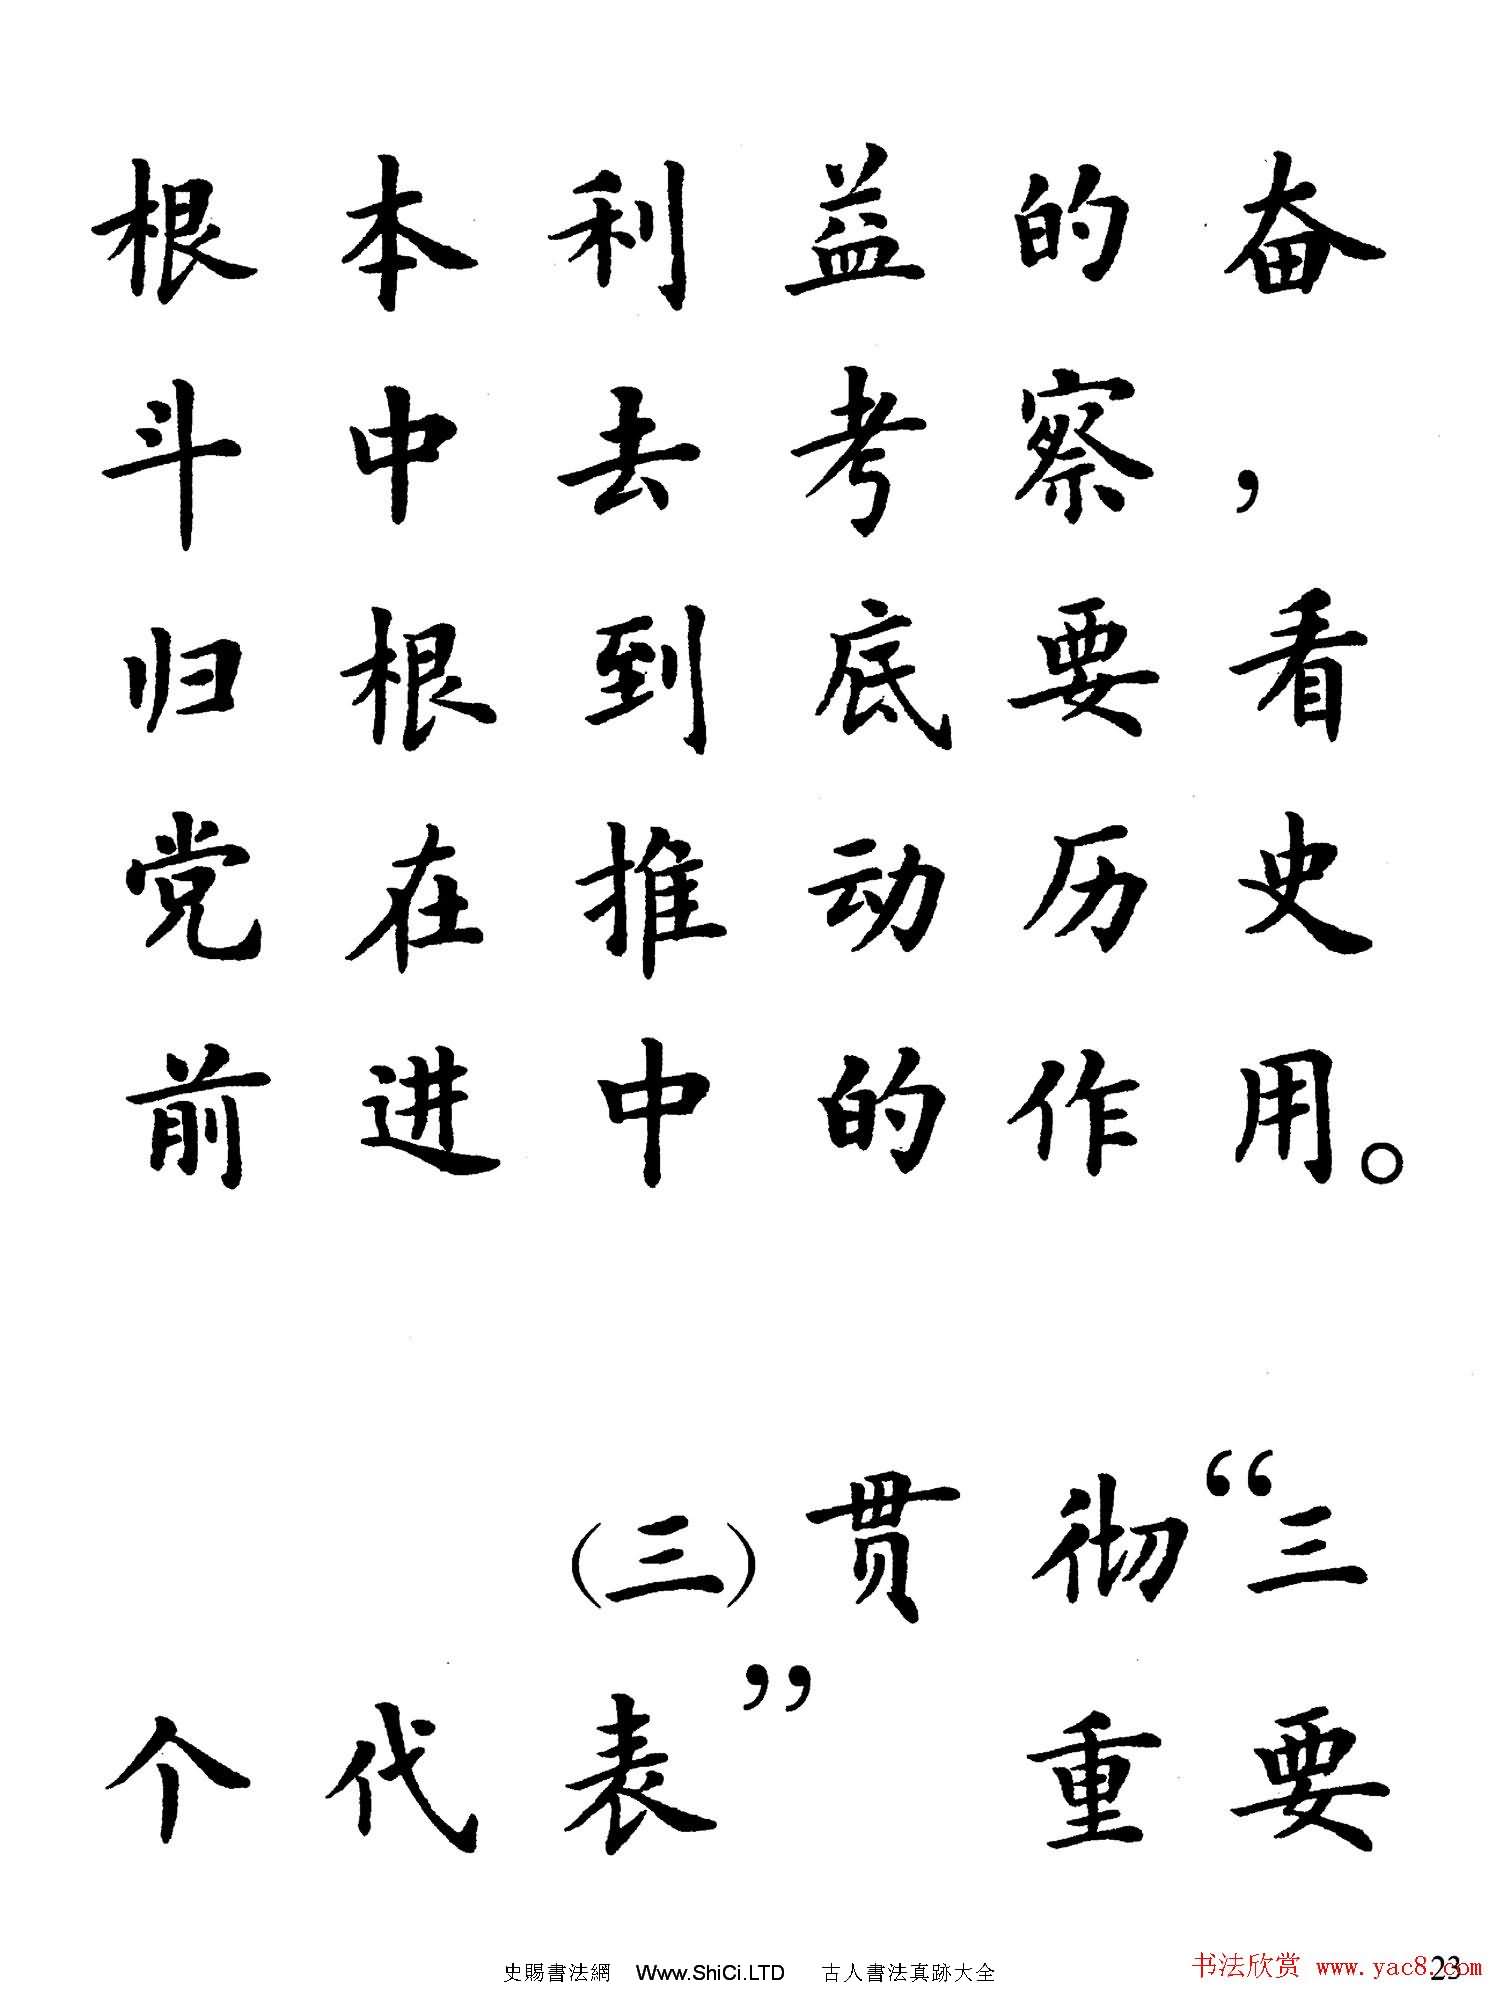 根本利益的奋
斗中去考察，
归根到底要看
党在推动历史
前进中的作用。
(三)贯彻“三
个代表”重要
史賜書法網 Www.ShiCi.LTD 古人書法真跡大全
书法欣赏 www.yac8.com
23